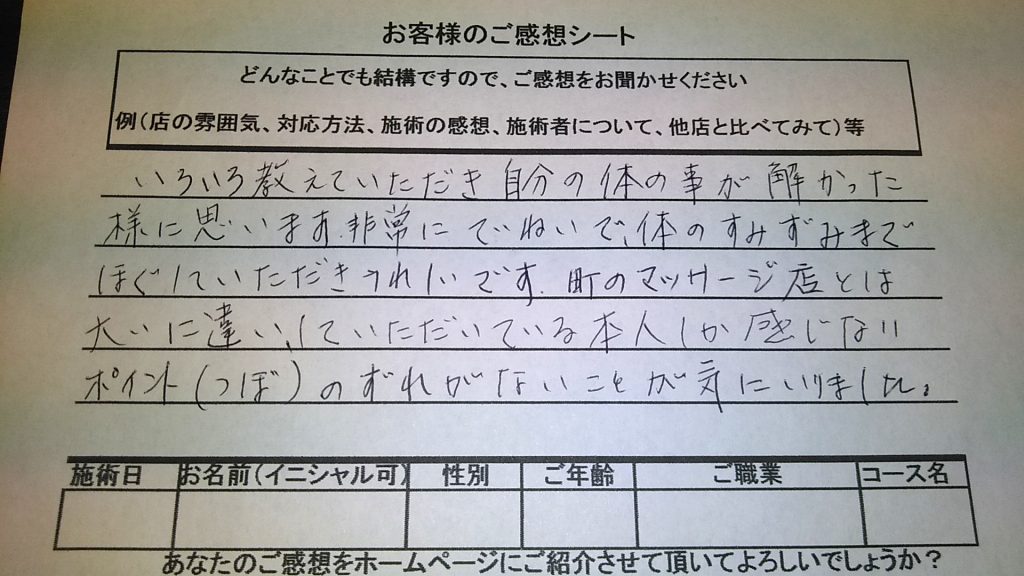 お客様のご感想シート
どんなことでも結構ですので、ご感想をお聞かせください
例(店の雰囲気、対応方法、施術の感想、施術者について、他店と比べてみて)等
いろいろ教えていただき自分の体の事が解かった
様に思います。非常にていねいで、体のすみずみまで
ほぐしていただきうれしいです。町のマッサージ店とは
大いに違い、していただいている本人しか感じない
ポイント(つぼ)のずれがないことが気にいりました。
施術日 お名前(イニシャル可) 性別 ご年齢 ご職業 コース名
あなたのご感想をホームページにご紹介させて頂いてよろしいでしょうか?